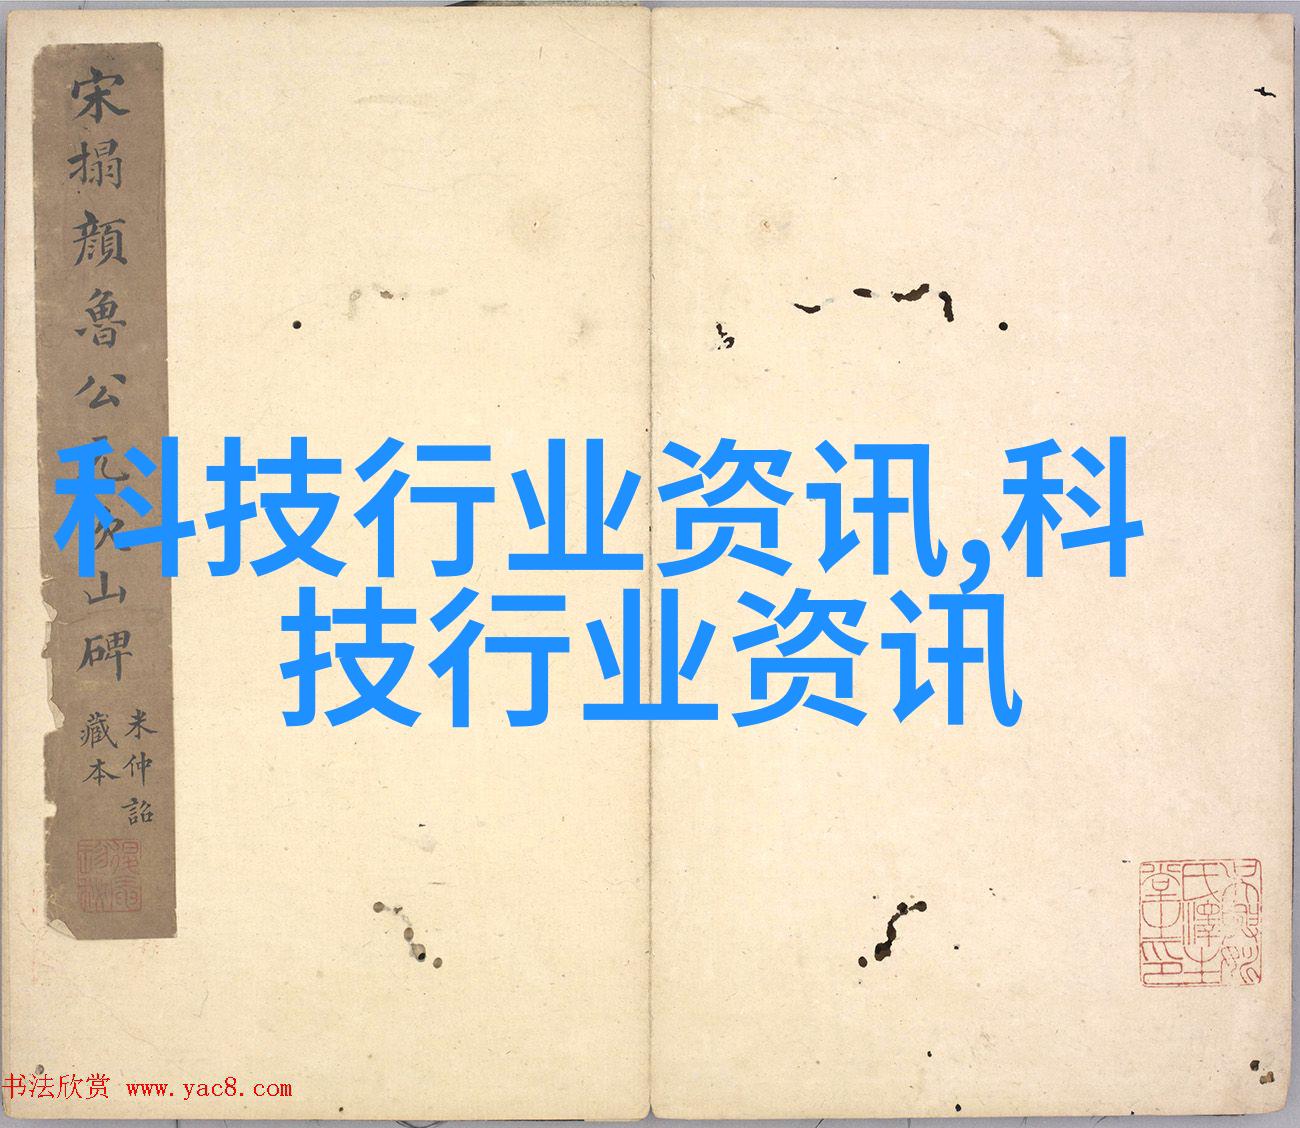 宋搨顔魯公元次山碑
米仲詔
藏本
科技行业资讯,科
技行业资讯
书法欣赏 www.yac8.com